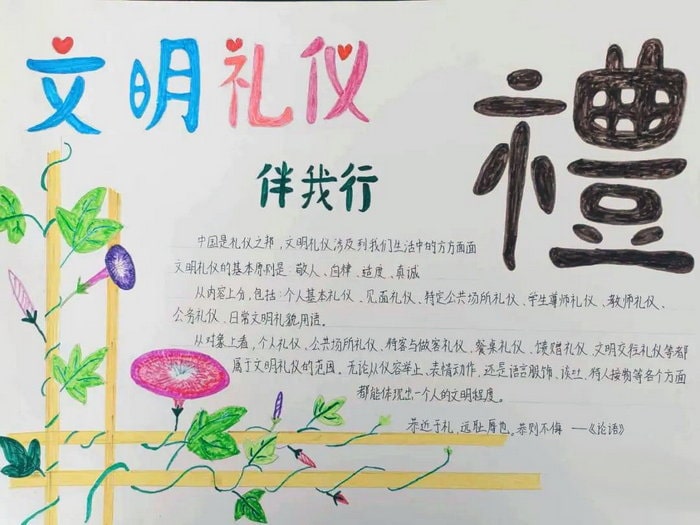 文明礼仪
禮
伴我行
中国是礼仪之邦，文明礼仪涉及到我们生活中的方方面面
文明礼仪的基本原则是：敬人、自律、适度、真诚
从内容上分，包括：个人基本礼仪、见面礼仪、特定公共场所礼仪、学生尊师礼仪、教师礼仪、
公务礼仪、日常文明礼貌用语。
从对象上看，个人礼仪、公共场所礼仪、待客与做客礼仪、餐桌礼仪、馈赠礼仪、文明交往礼仪等都
属于文明礼仪的范围。无论从仪容举止、表情动作、还是语言服饰、谈吐、待人接物等各个方面
都能体现出一个人的文明程度。
恭近于礼，远耻辱也。恭则不侮 ——《论语》